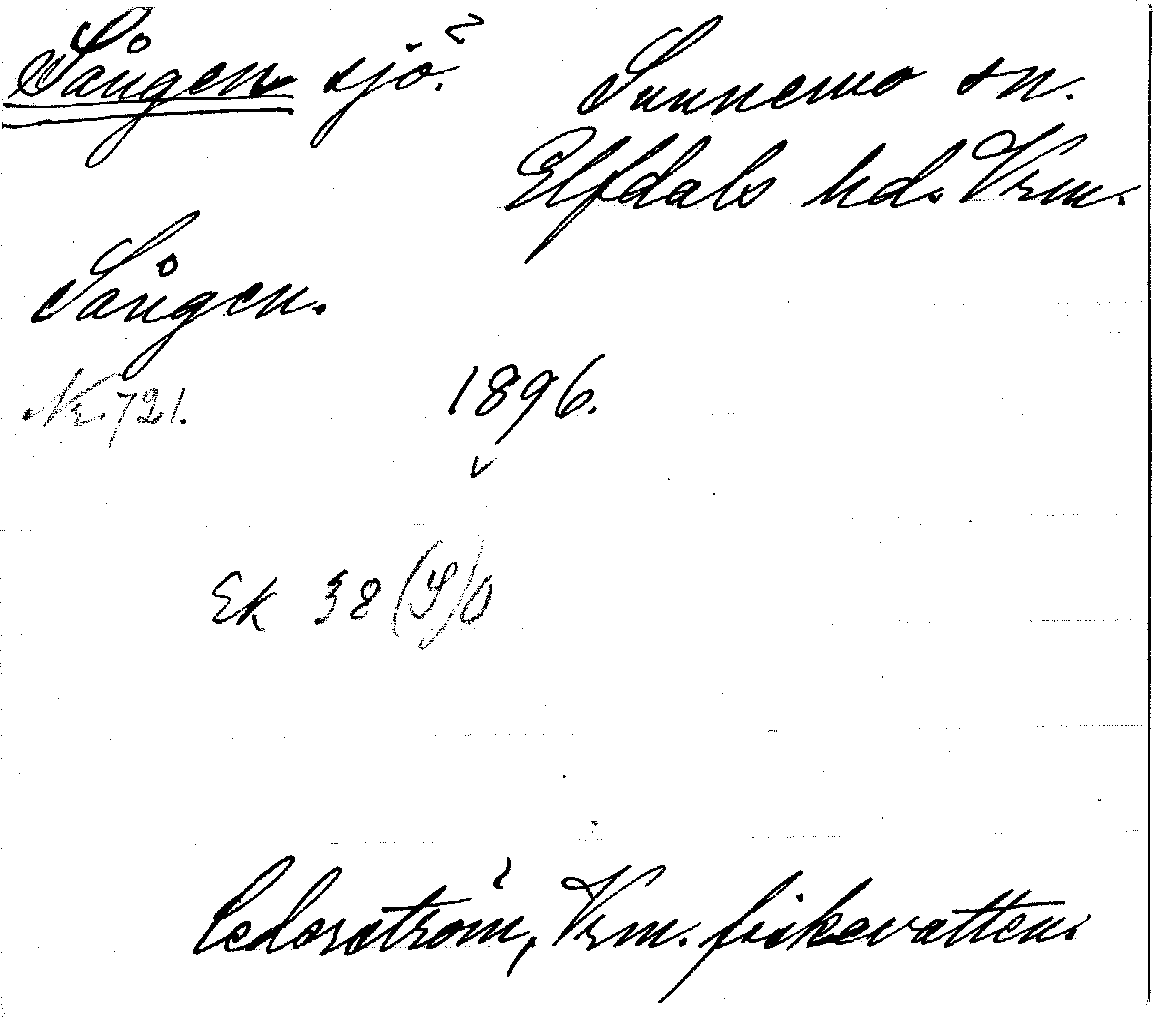 Sången sjö. Sunnemo sn.
Elfdals hd. Vrm.
Sången.
Nr. 721. 1896.
Ek 38 (S) O
Cederström, Vrm. fiskevatten.